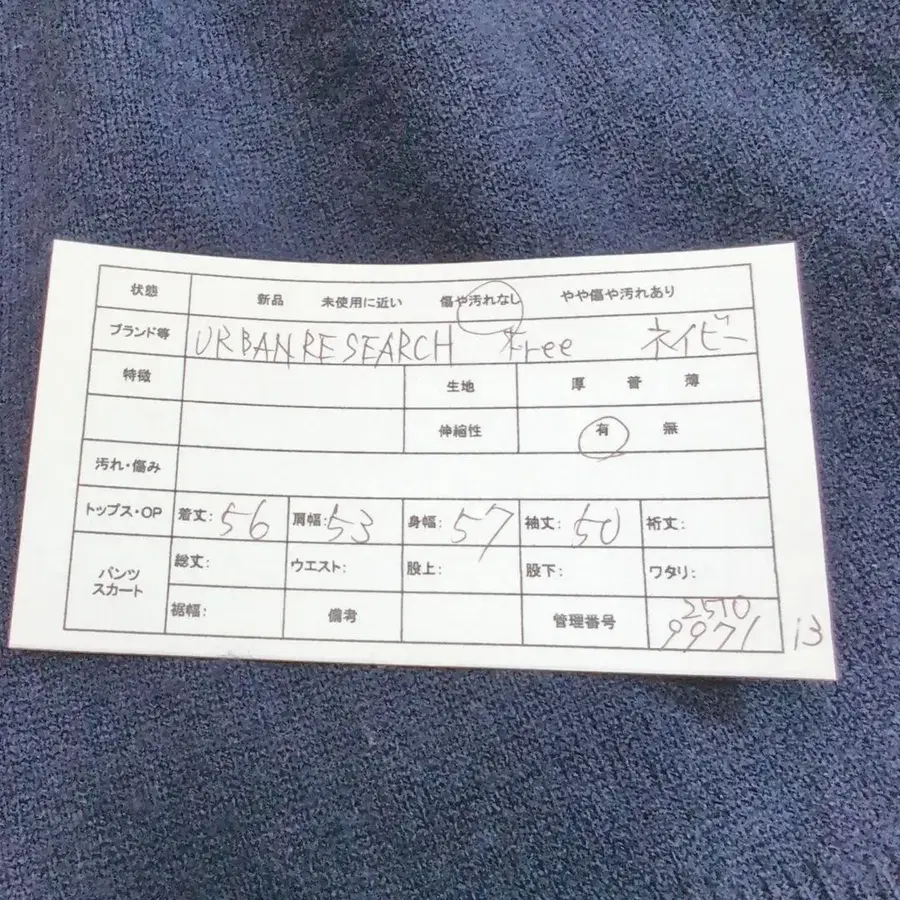 状態 新品 未使用に近い 傷や汚れなし やや傷や汚れあり
ブランド等 URBAN RESEARCH Free ネイビー
特徴 生地 厚 普 薄
伸縮性 有 無
汚れ・傷み
トップス・OP 着丈: 56 肩幅: 53 身幅: 57 袖丈: 50 裄丈:
パンツ スカート 総丈: ウエスト: 股上: 股下: ワタリ:
裾幅: 備考 管理番号 2510
9971 13